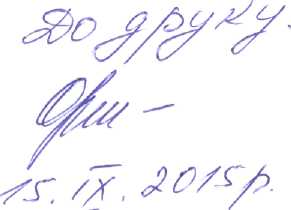 До друку.
15. IX. 2015р.